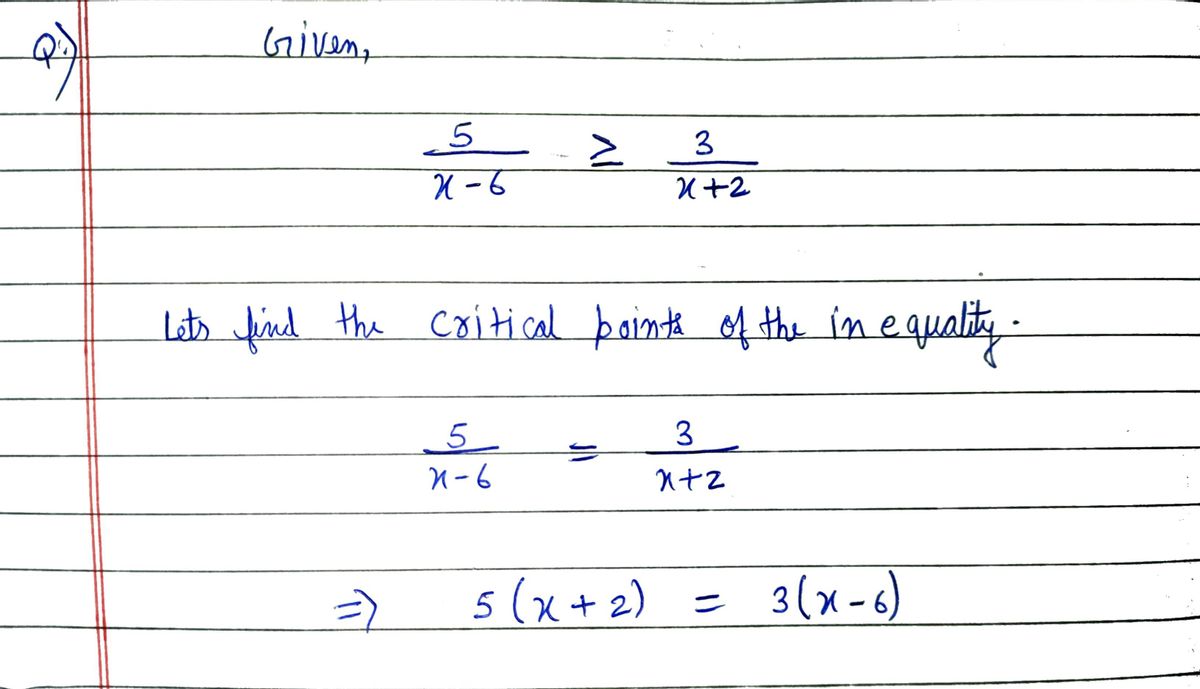 Q:) Given,
5/(x-6) ≥ 3/(x+2)
Lets find the critical points of the inequality.
5/(x-6) = 3/(x+2)
=> 5(x+2) = 3(x-6)